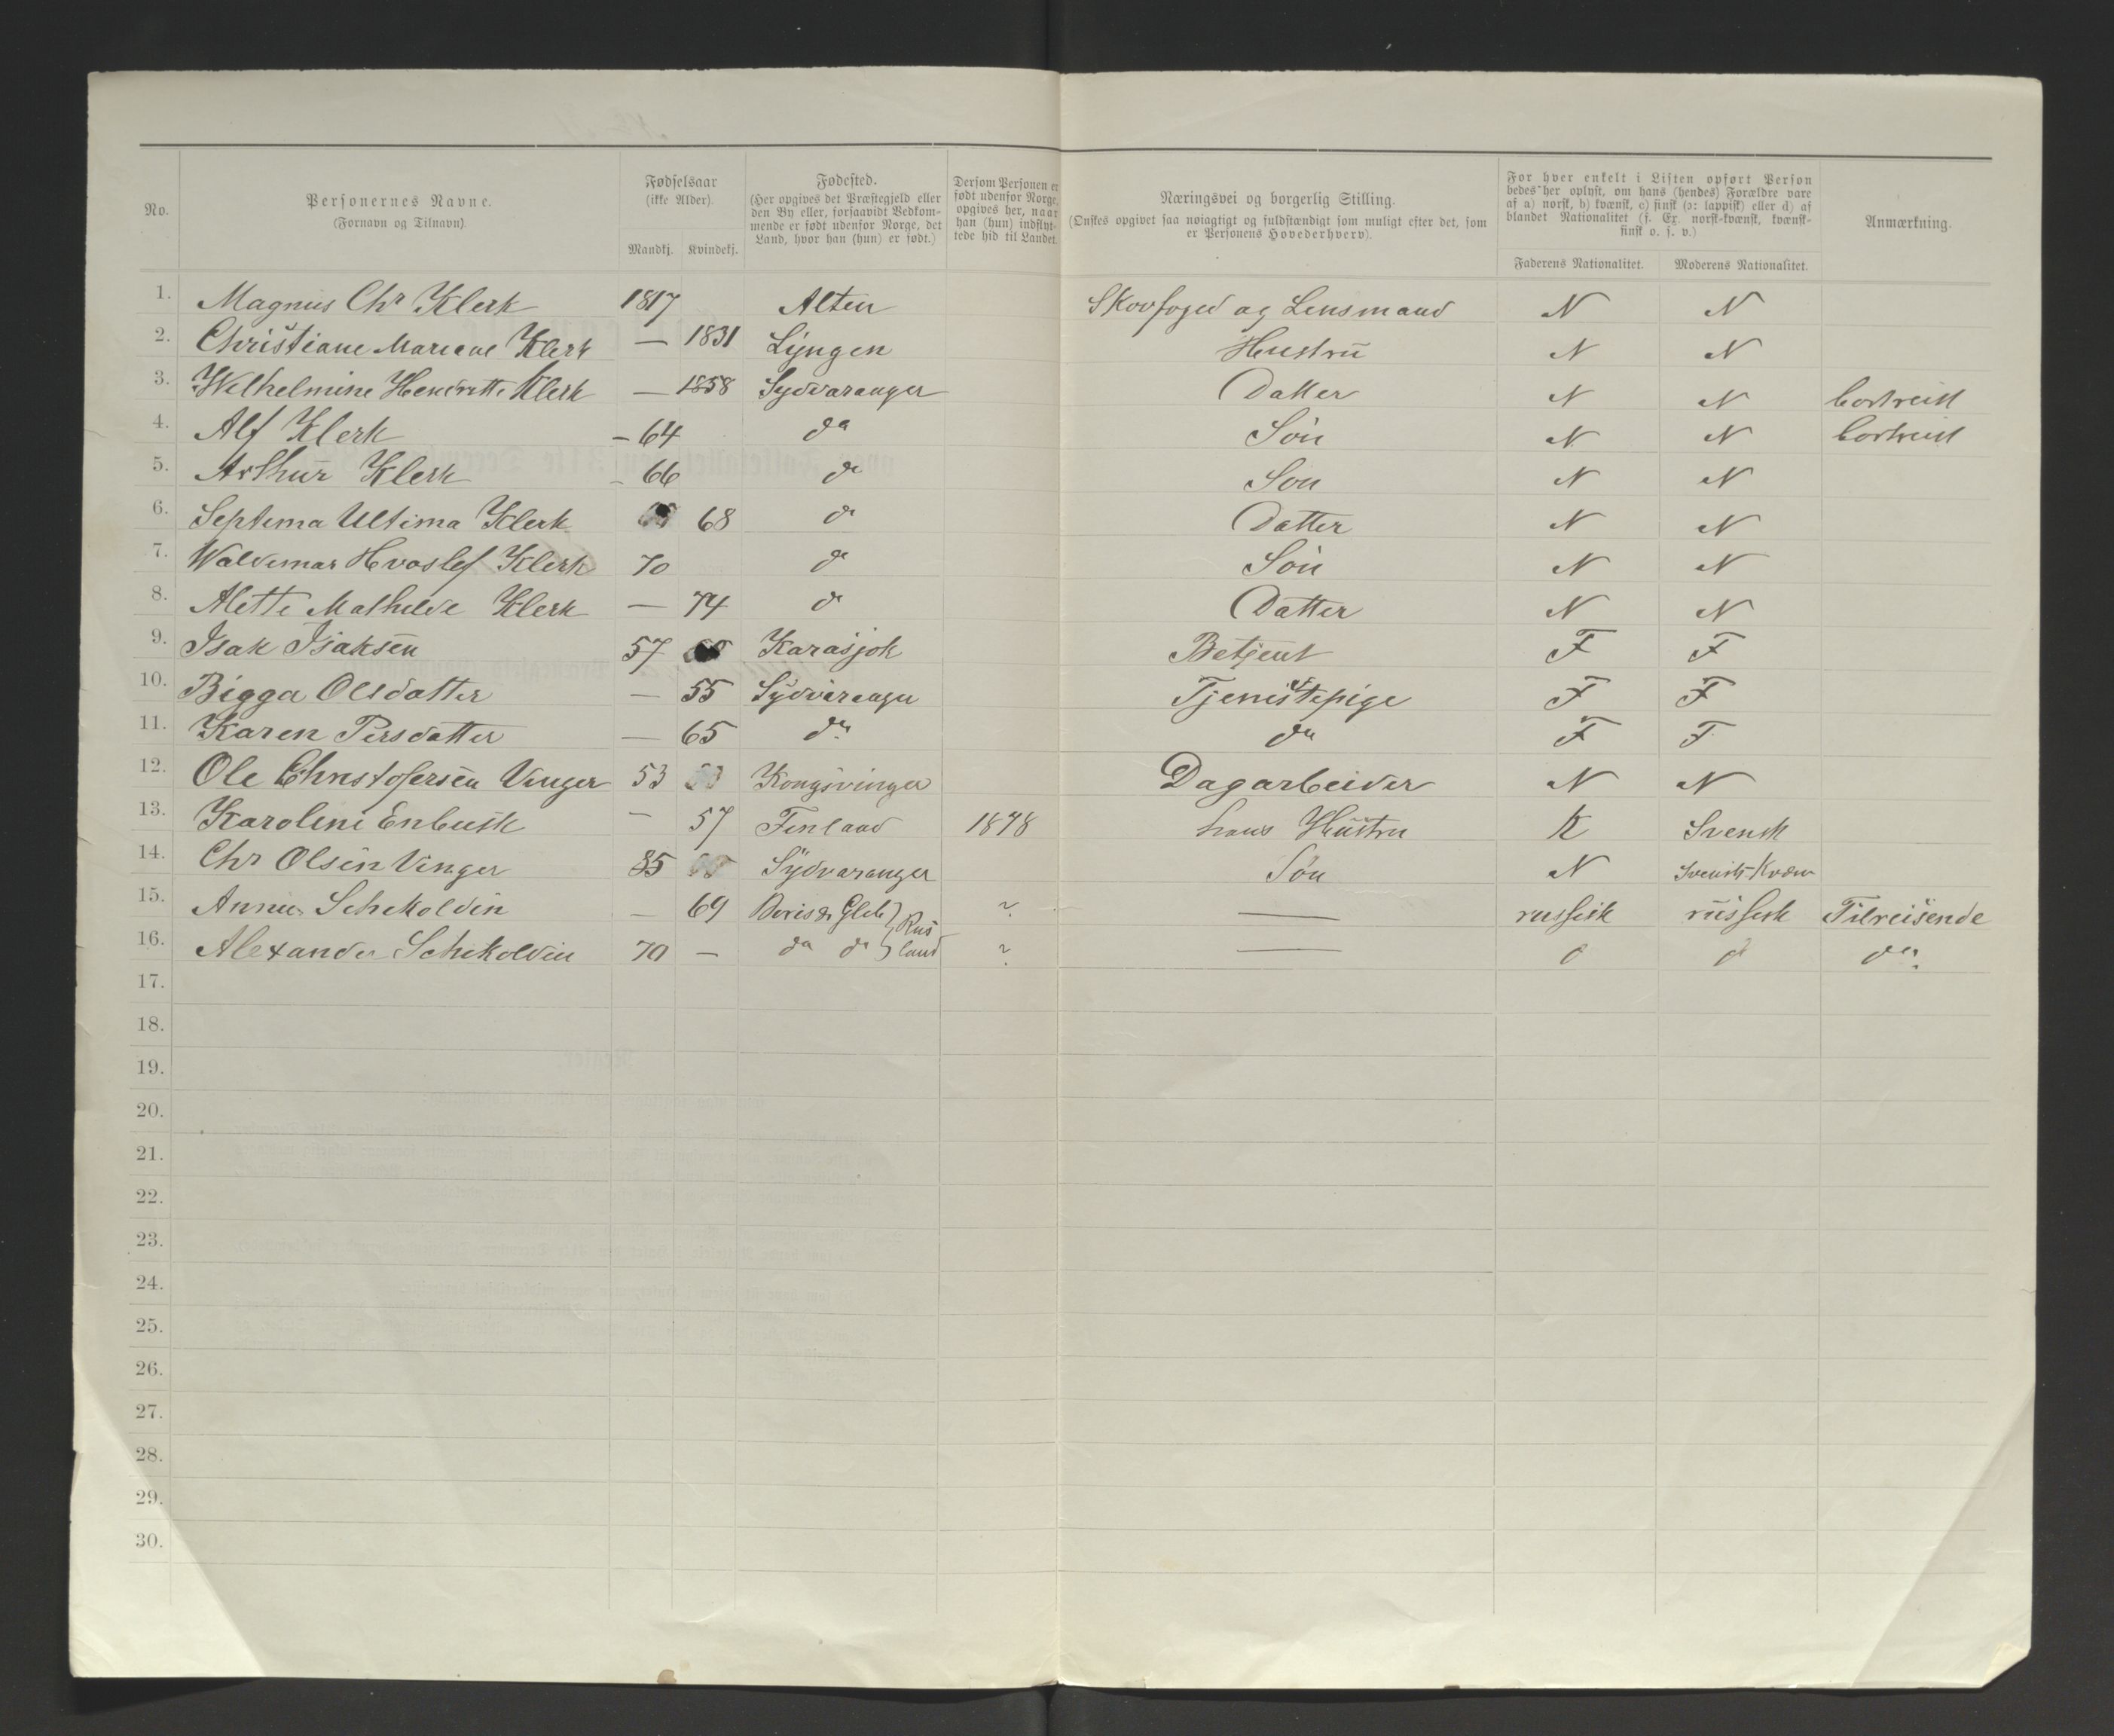 No.
Personernes Navne.
(Fornavn og Tilnavn)
Fødselsaar
(ikke Alder).
Mandkj. Kvindekj.
Fødested.
(Her opgives det Præstegjeld eller
den By eller, forsaavidt Vedkom-
mende er født udenfor Norge, det
Land, hvor han (hun) er født.)
Dersom Personen er
født udenfor Norge,
opgives her, naar
han (hun) indflyt-
tede hid til Landet.
Næringsvei og borgerlig Stilling.
(Ønskes opgivet saa nøiagtigt og fuldstændigt som muligt efter det, som
er Personens Hovederhverv).
For hver enkelt i Listen opført Person
bedes her oplyst, om hans (hendes) Forældre vare
af a) norsk, b) kvænsk, c) finsk (ɔ: lappisk) eller d) af
blandet Nationalitet (f. Ex. norsk-kvænsk, kvænsk-
finsk o. s. v.)
Faderens Nationalitet. Moderens Nationalitet.
Anmærkning.
1. Magnus Chr Klerk 1817 Alten Skovfoged og Lensmand N N
2. Christiane Mariane Klerk — 1831 Lyngen Hustru N N
3. Wilhelmine Hendrette Klerk — 1858 Sydvaranger Datter N N bortreist
4. Alf Klerk - 64 do Søn N N bortreist
5. Arthur Klerk - 66 do Søn N N
6. Septima Ultima Klerk 68 do Datter N N
7. Waldemar Hvoslef Klerk 70 do Søn N N
8. Alette Mathilde Klerk — 74 do Datter N N
9. Isak Isaksen 57 Karasjok Betjent F F
10. Bigga Olsdatter — 55 Sydvaranger Tjenestepige F F
11. Karen Persdatter — 65 do F F do
12. Ole Christofersen Vinger 53 Kongsvinger Dagarbeider N N
13. Karoline Enbusk — 57 Finland 1878 hans Hustru K Svensk
14. Chr Olsen Vinger 85 Sydvaranger Søn N Svensk-Kvæn
15. Annie Schekoldin — 69 Boris & Gleb } Rus ? — russisk russisk Tilreisende
16. Alexander Schekoldin 70 — do do } land ? — do do do.
17.
18.
19.
20.
21.
22.
23.
24.
25.
26.
27.
28.
29.
30.